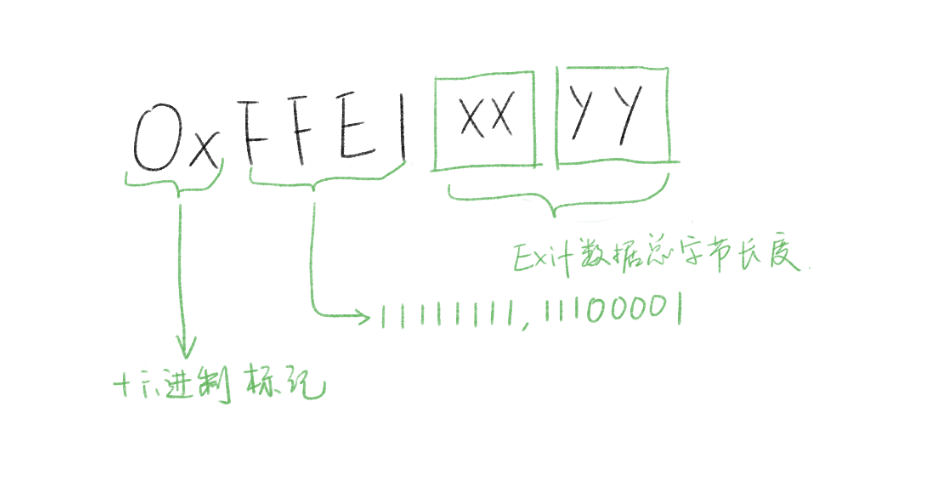 0xFFE1 XX YY
Exif数据总字节长度
11111111,11100001
十六进制标记